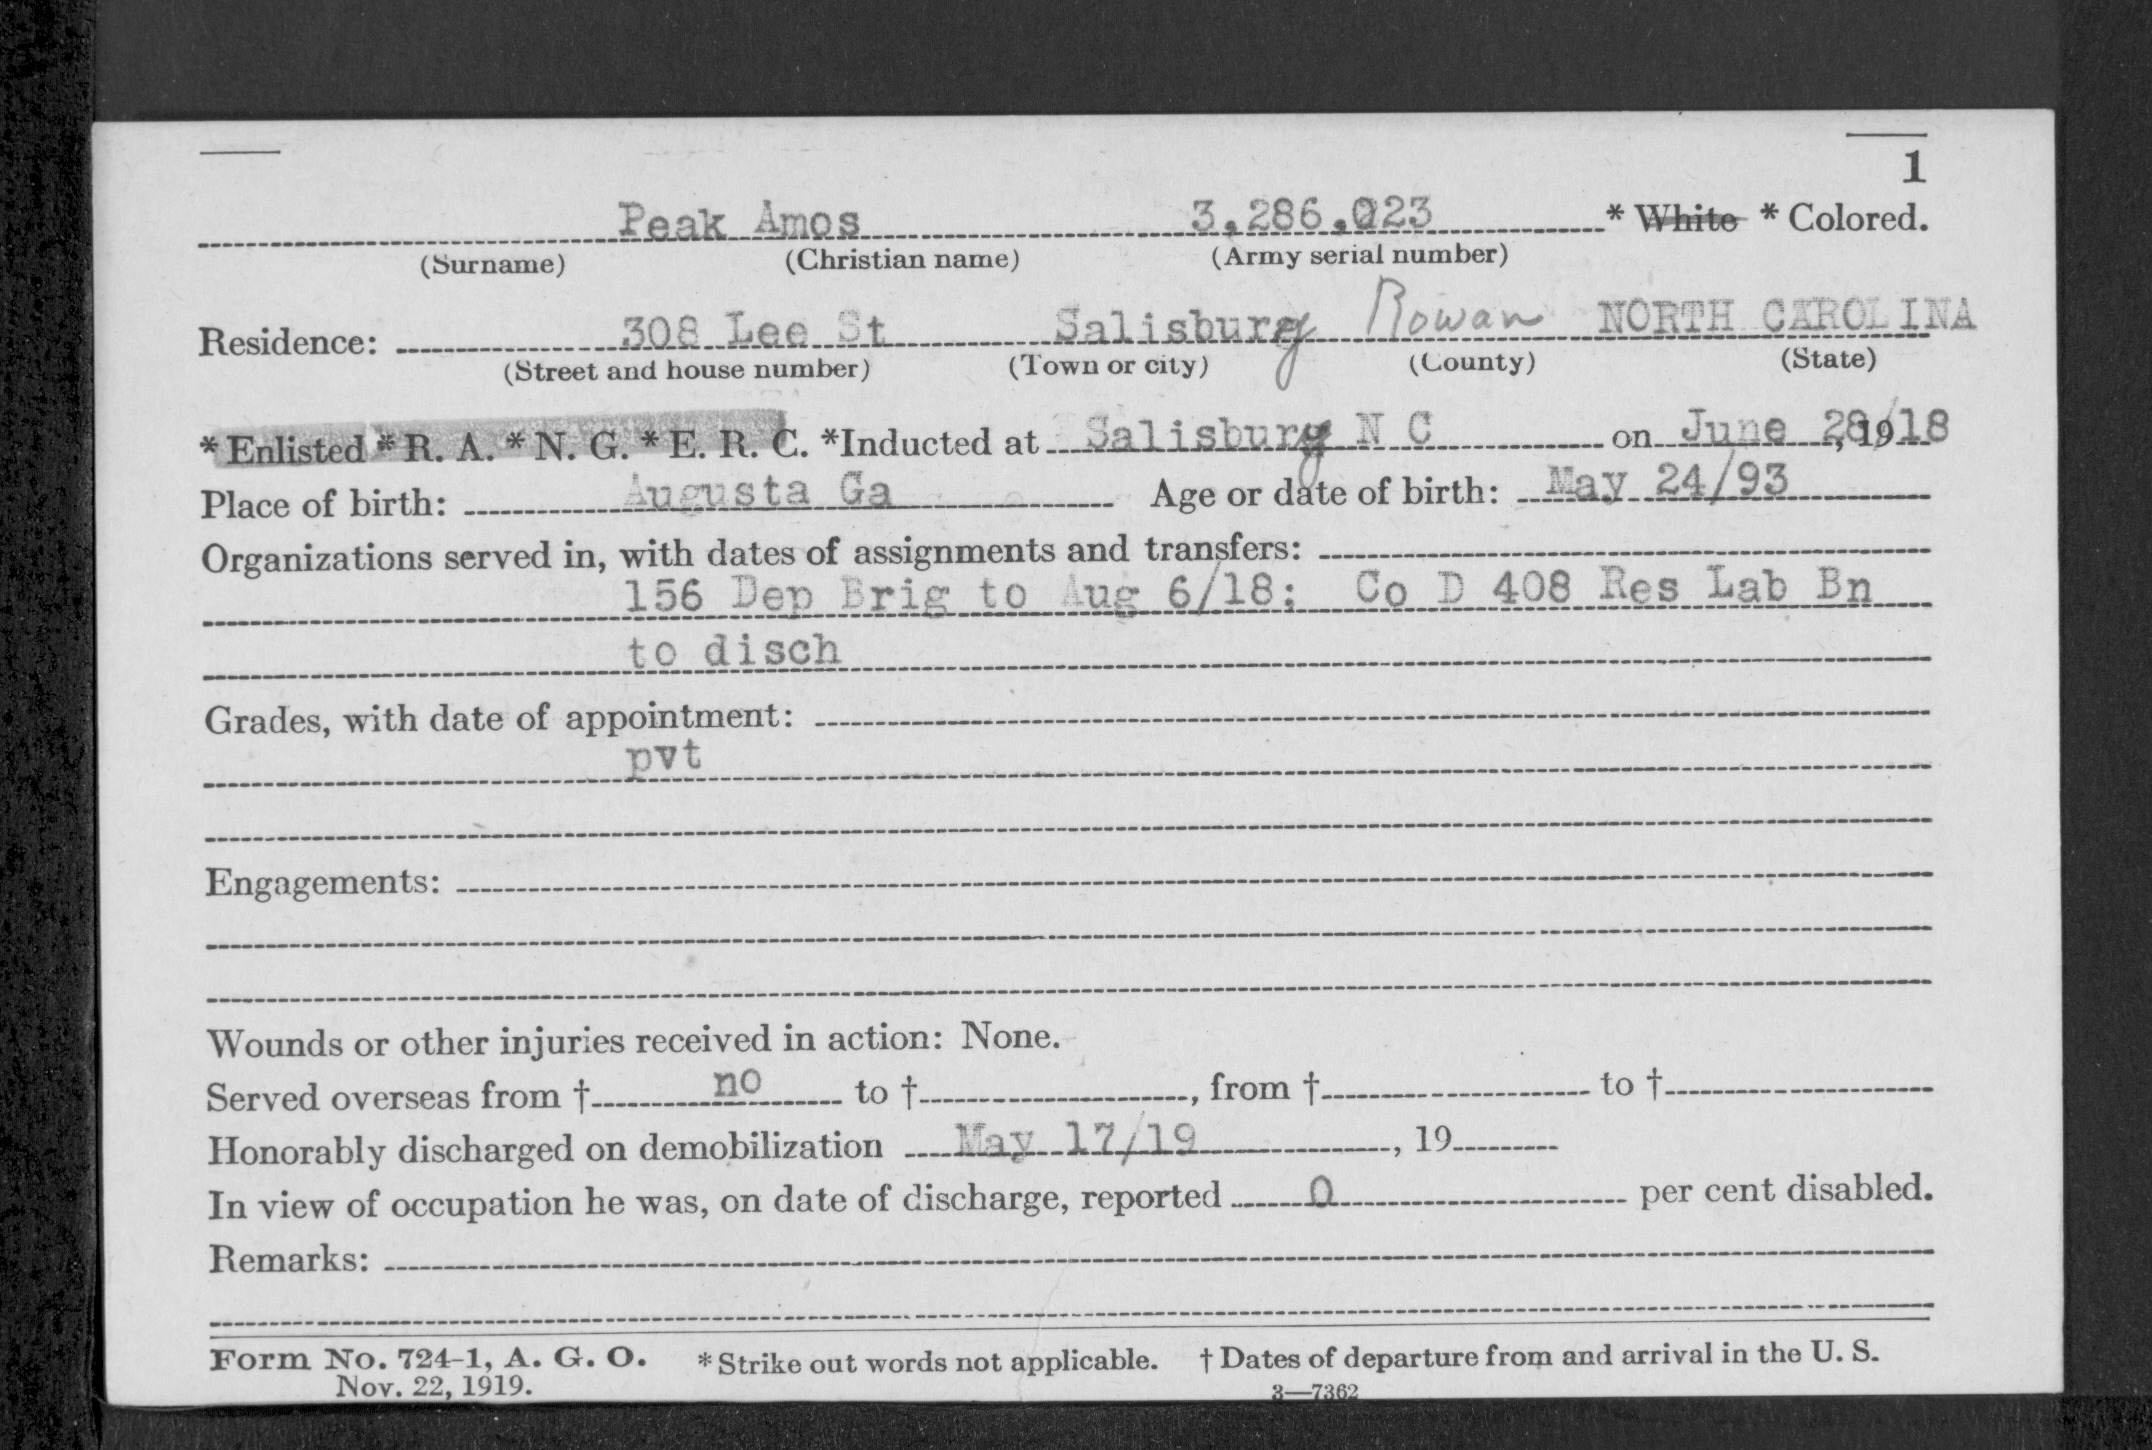 1
Peak Amos 3,286,023 * White * Colored.
(Surname) (Christian name) (Army serial number)
Residence: 308 Lee St Salisbury Rowan NORTH CAROLINA
(Street and house number) (Town or city) (County) (State)
* Enlisted * R. A. * N. G. * E. R. C. *Inducted at Salisbury N C on June 28/18, 19
Place of birth: Augusta Ga Age or date of birth: May 24/93
Organizations served in, with dates of assignments and transfers:
156 Dep Brig to Aug 6/18; Co D 408 Res Lab Bn
to disch
Grades, with date of appointment:
pvt
Engagements:
Wounds or other injuries received in action: None.
Served overseas from † no to †, from † to †
Honorably discharged on demobilization May 17/19, 19
In view of occupation he was, on date of discharge, reported 0 per cent disabled.
Remarks:
Form No. 724-1, A. G. O. * Strike out words not applicable. † Dates of departure from and arrival in the U. S.
Nov. 22, 1919. 3—7362